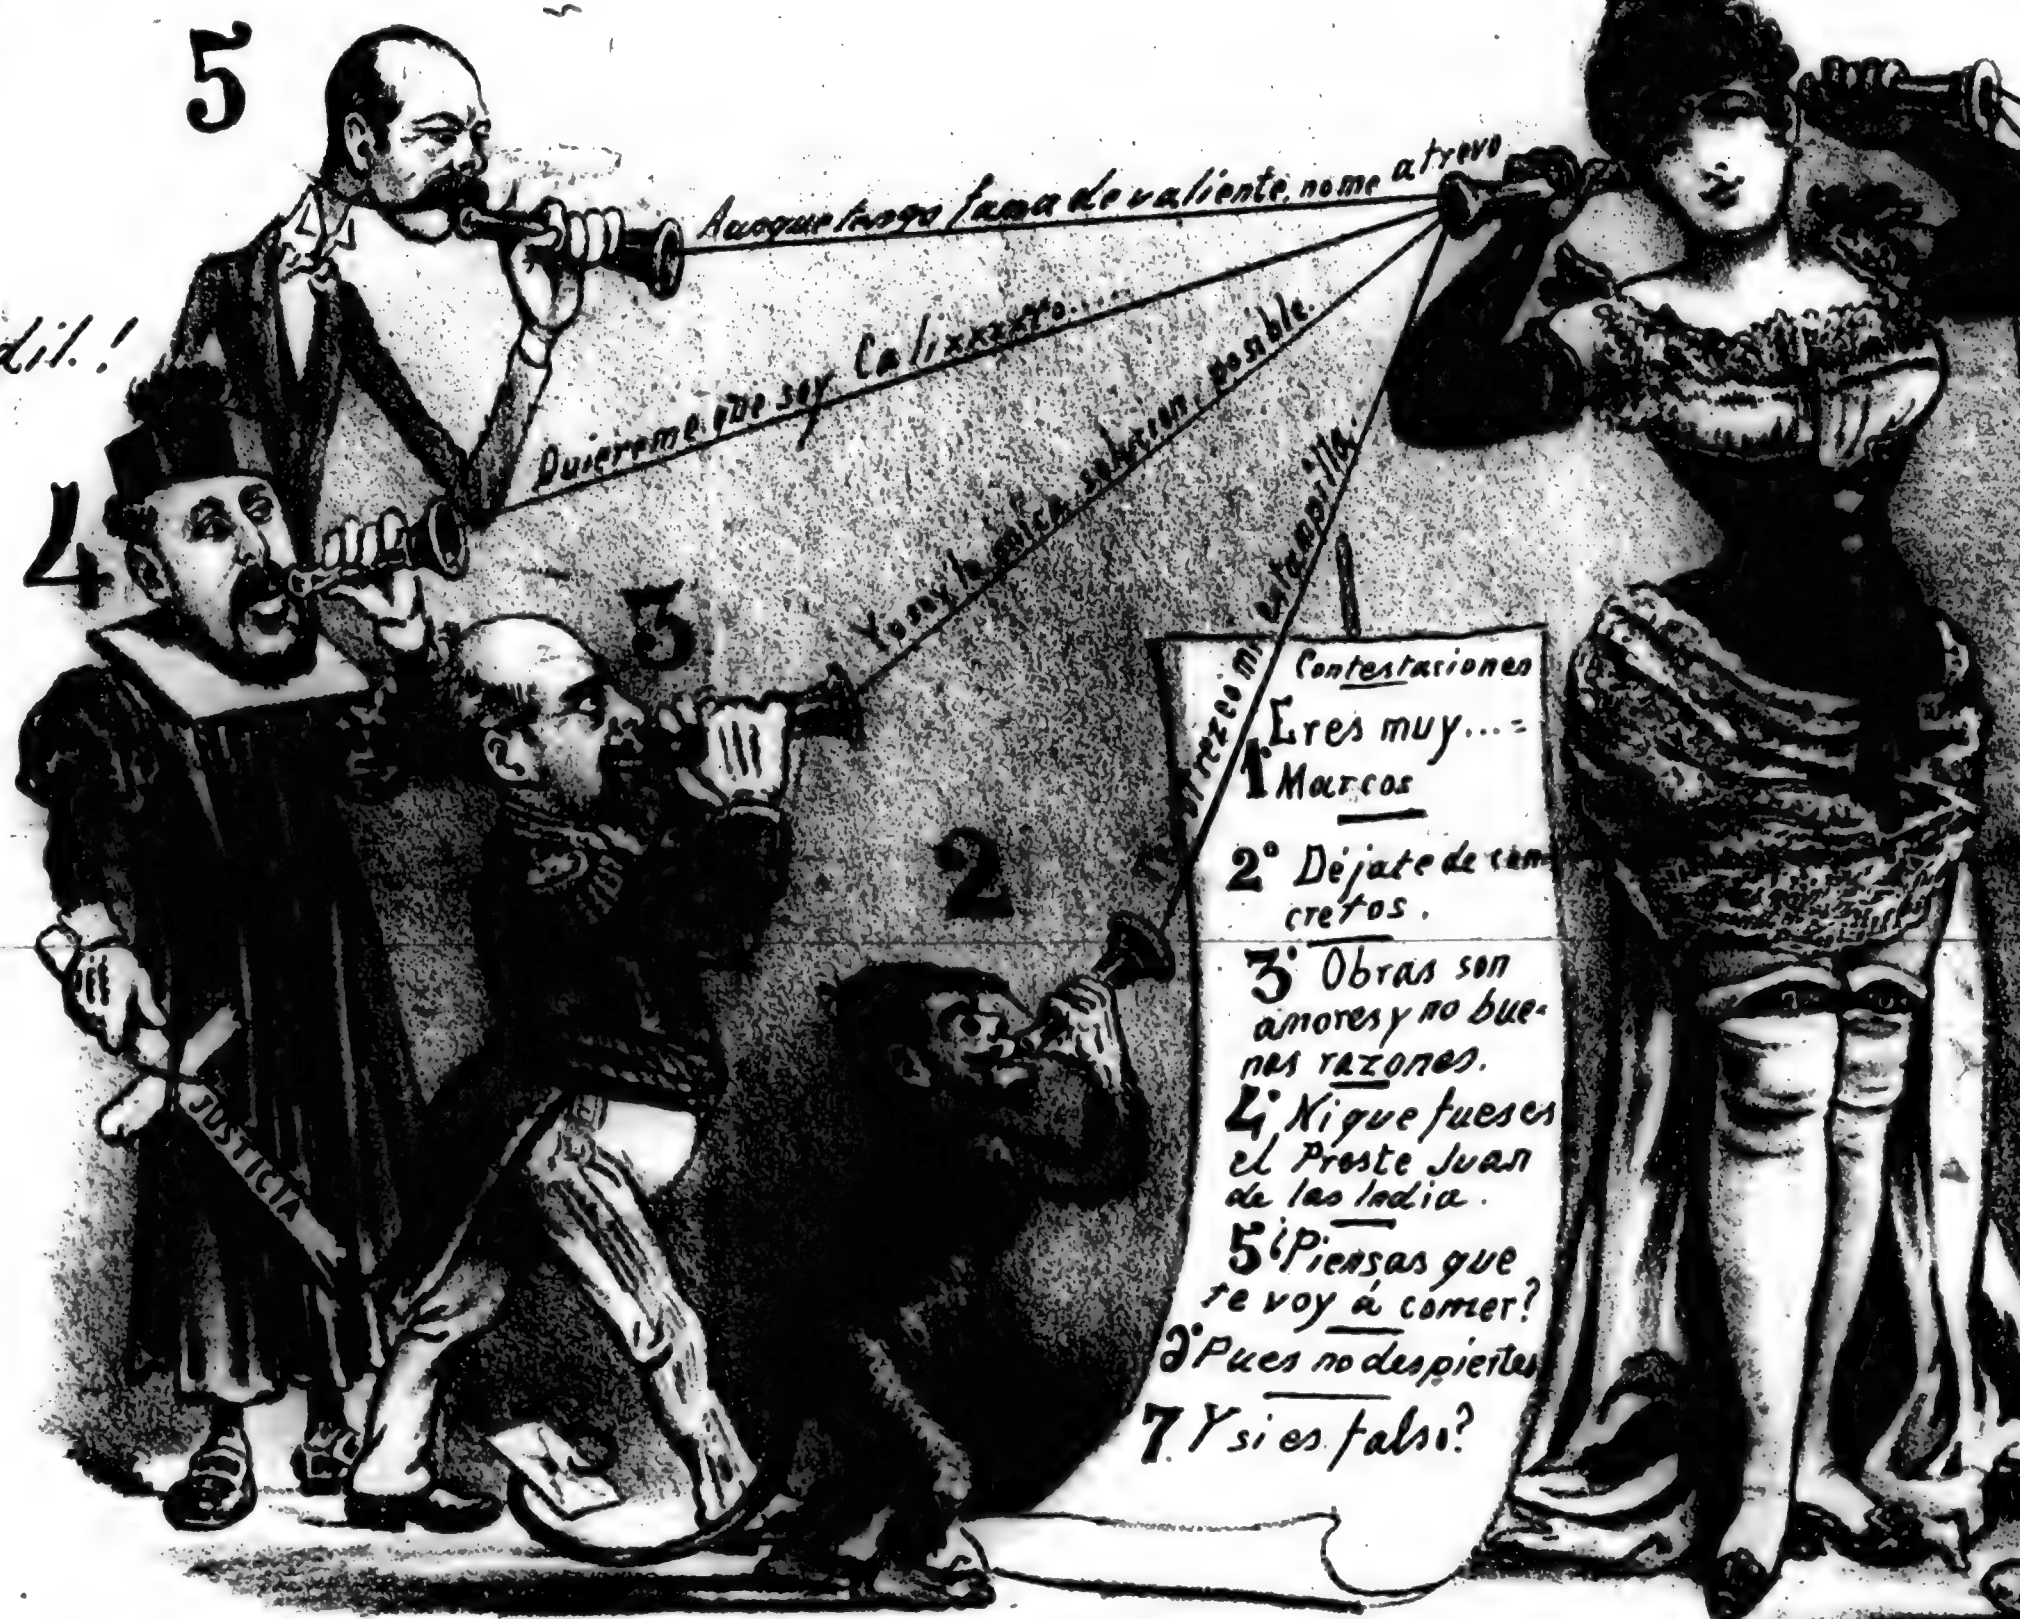 5
Aunque tengo fama de valiente, no me atrevo
dil.!
Quiereme que soy Calixxxxto.....
4
Yo soy la única solucion posible.
3
ofrezco mi estampilla.
2
Contestaciones
1° Eres muy...=
Marcos
2° Déjate de
cretos.
3° Obras son
amores y no bue-
nas razones.
4° Ni que fueses
el Preste Juan
de las India.
5° ¿Piensas que
te voy á comer?
Pues no despiertes
7 Y si es falso?
JUSTICIA